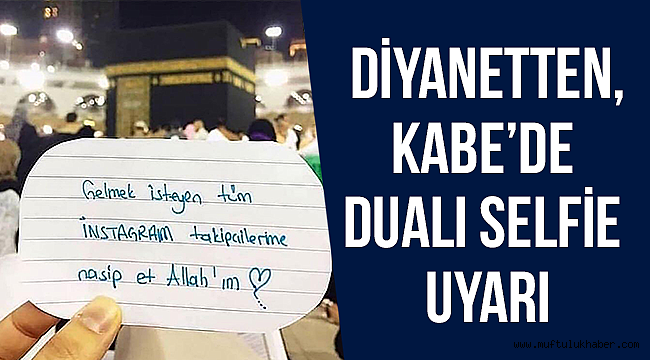 Gelmek isteyen tüm
İNSTAGRAM takipçilerime
nasip et Allah'ım
DİYANETTEN,
KABE'DE
DUALI SELFİE
UYARI
www.muftulukhaber.com